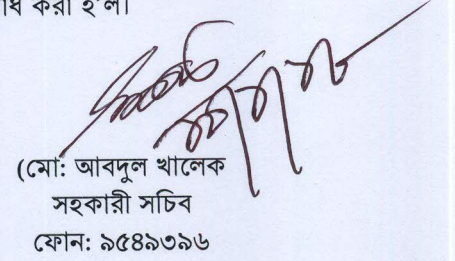 করা হ'ল।
(মো: আবদুল খালেক
সহকারী সচিব
ফোন: ৯৫৪৯৩৯৬